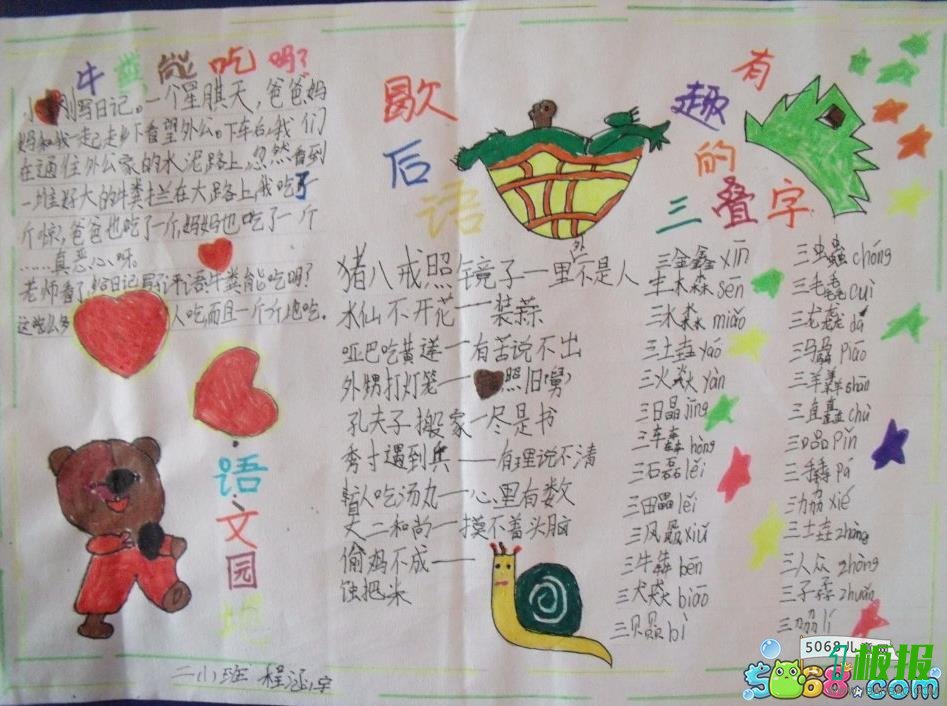 牛粪能吃吗?
小刚写日记。一个星期天,爸爸妈
妈和我一起走乡下看望外公。下车后,我们
在通往外公家的水泥路上,忽然看到
一堆好大的牛粪拦在大路上,我吃了
一惊,爸爸也吃了一个,妈妈也吃了一个
……真恶心呀。
老师看了
牛粪能吃吗?
这吃么多人吃,而且一个个地吃。
语文园地
二小班
歇后语
猪八戒照镜子一里外不是人
水仙不开花一装蒜
哑巴吃黄莲一有苦说不出
外甥打灯笼一照旧(舅)
孔夫子搬家一尽是书
秀才遇到兵一有理说不清
盲人吃汤丸一心里有数
丈二和尚一摸不着头脑
偷鸡不成一
蚀把米
有趣的三叠字
三金鑫xīn
三木森sēn
三水淼miǎo
三土垚yáo
三火焱yàn
三日晶jīng
三车轰hōng
三石磊lěi
三田畾lěi
三风飍xiū
三牛犇bēn
三犬猋biāo
三贝赑bì
三虫蟲chóng
三毛毳cuì
三龙龘dá
三马骉piāo
三羊羴shān
三直矗chù
三口品pǐn
三力劦xié
三人众zhòng
三子孨zhuǎn
三力劦lí
5068儿童网
板报
5068.com